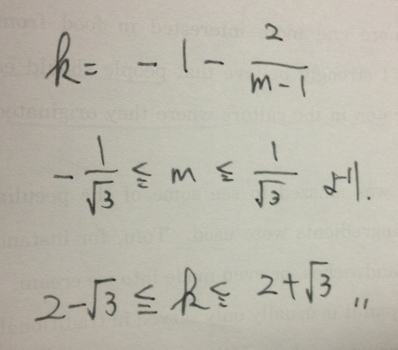 k = - 1 - 2/(m-1)
- 1/√3 ≦ m ≦ 1/√3 より.
2-√3 ≦ k ≦ 2+√3 〃